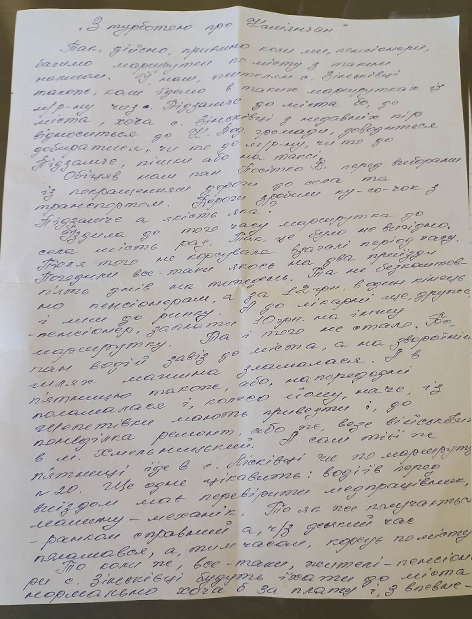 „З турботою про Кам'янчан"
Так, дійсно, приємно коли ми, пенсіонери,
бачимо маршрутки по місту з таким
написом. І наш, жителям с. Зіньківці
також, коли їдемо в таких маршрутках із
м/р-ну через Підзамче до міста бо, до
міста, хоча с. Зіньківці з недавніх пір
відноситься до громади, доводиться
добиратися, чи то до м/р-ну, чи то до
Підзамче, пішки або на таксі.
Обіцяв нам пан Посітко перед виборами
із покращенням дороги до села та
транспортом. Дороги зробили ку-со-чок з
Підзамче а якість яка?
Їздила до того часу маршрутка до
села шість раз. Так це було не вигідно.
Після того не курсувала взагалі період часу.
Погодили все-таки якось на два приїзди
п'ять днів на тиждень. Та не безкоштов
но пенсіонерам, а за 12 грн. в один кінець
і ми до ринку. А до лікарні ще, друже
-пенсіонер, заплати 10 грн. на іншу
маршрутку. Та і того не стало. Бо
пан водій завіз до міста, а на зворотній
шлях машина зламалася. І в
п'ятницю також, або, напередодні
поламалася і, колесо ніому, наче, із
Шепетівки мають привезти і, до
понеділка ремонт, або же, везе військових
в м. Хмельницький. А сам тієї же
п'ятниці їде в с. Нісківці чи по маршруту
№ 20. Ще одне цікавить: водіїв перед
виїздом має перевірити медпрацівник,
машину – механік. То як же получається
– ранком справний а, ч/з деякий час
поламався, а, тим часом, курсує по місту
То коли ж, все-таки, жителі-пенсіоне
ри с. Зіньківці будуть їхати до міста
нормально хоча б за плату і, з впевне-